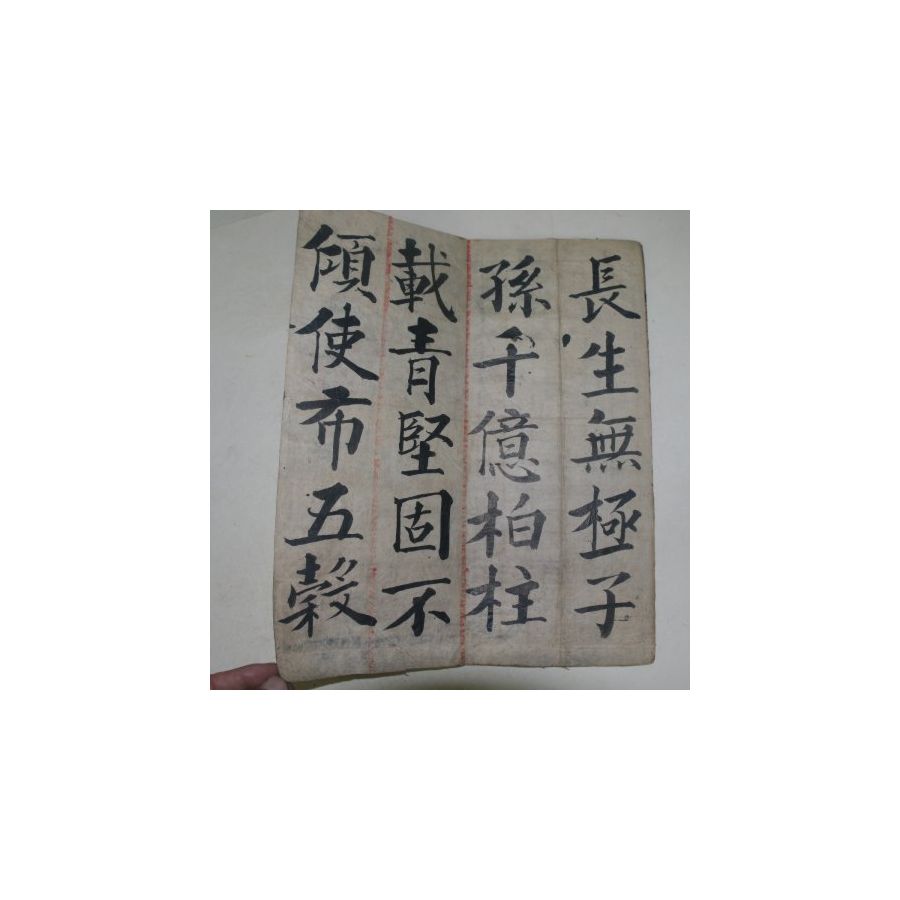 長生無極子
孫千億柏柱
載青堅固不
傾使布五穀